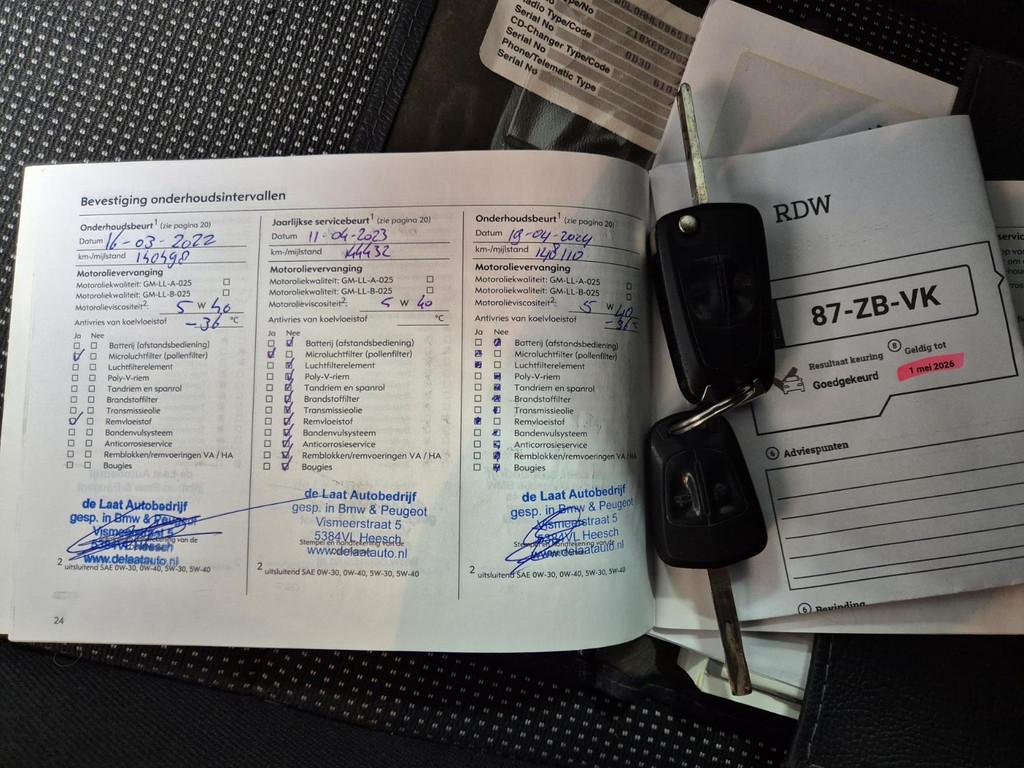 Bevestiging onderhoudsintervallen
Onderhoudsbeurt1 (zie pagina 20)
Datum 16-03-2022
km-/mijlstand 140498
Motorolievervanging
Motoroliekwaliteit: GM-LL-A-025
Motoroliekwaliteit: GM-LL-B-025
Motorolieviscositeit2: 5 W 40
Antivries van koelvloeistof -36 °C
Ja Nee
Batterij (afstandsbediening)
Microluchtfilter (pollenfilter)
Luchtfilterelement
Poly-V-riem
Tandriem en spanrol
Brandstoffilter
Transmissieolie
Remvloeistof
Bandenvulsysteem
Anticorrosieservice
Remblokken/remvoeringen VA / HA
Bougies
de Laat Autobedrijf
gesp. in Bmw & Peugeot
Vismeerstraat 5
5384VL Heesch
www.delaatauto.nl
2 uitsluitend SAE 0W-30, 0W-40, 5W-30, 5W-40
24
Jaarlijkse servicebeurt1 (zie pagina 20)
Datum 11-04-2023
km-/mijlstand 144432
Motorolievervanging
Motoroliekwaliteit: GM-LL-A-025
Motoroliekwaliteit: GM-LL-B-025
Motorolieviscositeit2: 5 W 40
Antivries van koelvloeistof °C
Ja Nee
Batterij (afstandsbediening)
Microluchtfilter (pollenfilter)
Luchtfilterelement
Poly-V-riem
Tandriem en spanrol
Brandstoffilter
Transmissieolie
Remvloeistof
Bandenvulsysteem
Anticorrosieservice
Remblokken/remvoeringen VA / HA
Bougies
de Laat Autobedrijf
gesp. in Bmw & Peugeot
Vismeerstraat 5
5384VL Heesch
www.delaatauto.nl
2 uitsluitend SAE 0W-30, 0W-40, 5W-30, 5W-40
Onderhoudsbeurt1 (zie pagina 20)
Datum 19-04-2024
km-/mijlstand 148110
Motorolievervanging
Motoroliekwaliteit: GM-LL-A-025
Motoroliekwaliteit: GM-LL-B-025
Motorolieviscositeit2: 5 W 40
Antivries van koelvloeistof -36 °C
Ja Nee
Batterij (afstandsbediening)
Microluchtfilter (pollenfilter)
Luchtfilterelement
Poly-V-riem
Tandriem en spanrol
Brandstoffilter
Transmissieolie
Remvloeistof
Bandenvulsysteem
Anticorrosieservice
Remblokken/remvoeringen VA / HA
Bougies
de Laat Autobedrijf
gesp. in Bmw & Peugeot
Vismeerstraat 5
5384VL Heesch
Stempel en handtekening van de
www.delaatauto.nl
2 uitsluitend SAE 0W-30, 0W-40, 5W-30, 5W-40
Radio Type/Code
Serial No
CD-Changer Type/Code
Serial No
Phone/Telematic Type
Serial No
RDW
87-ZB-VK
Resultaat keuring
Goedgekeurd
8 Geldig tot
1 mei 2026
6 Adviespunten
5 Bevinding